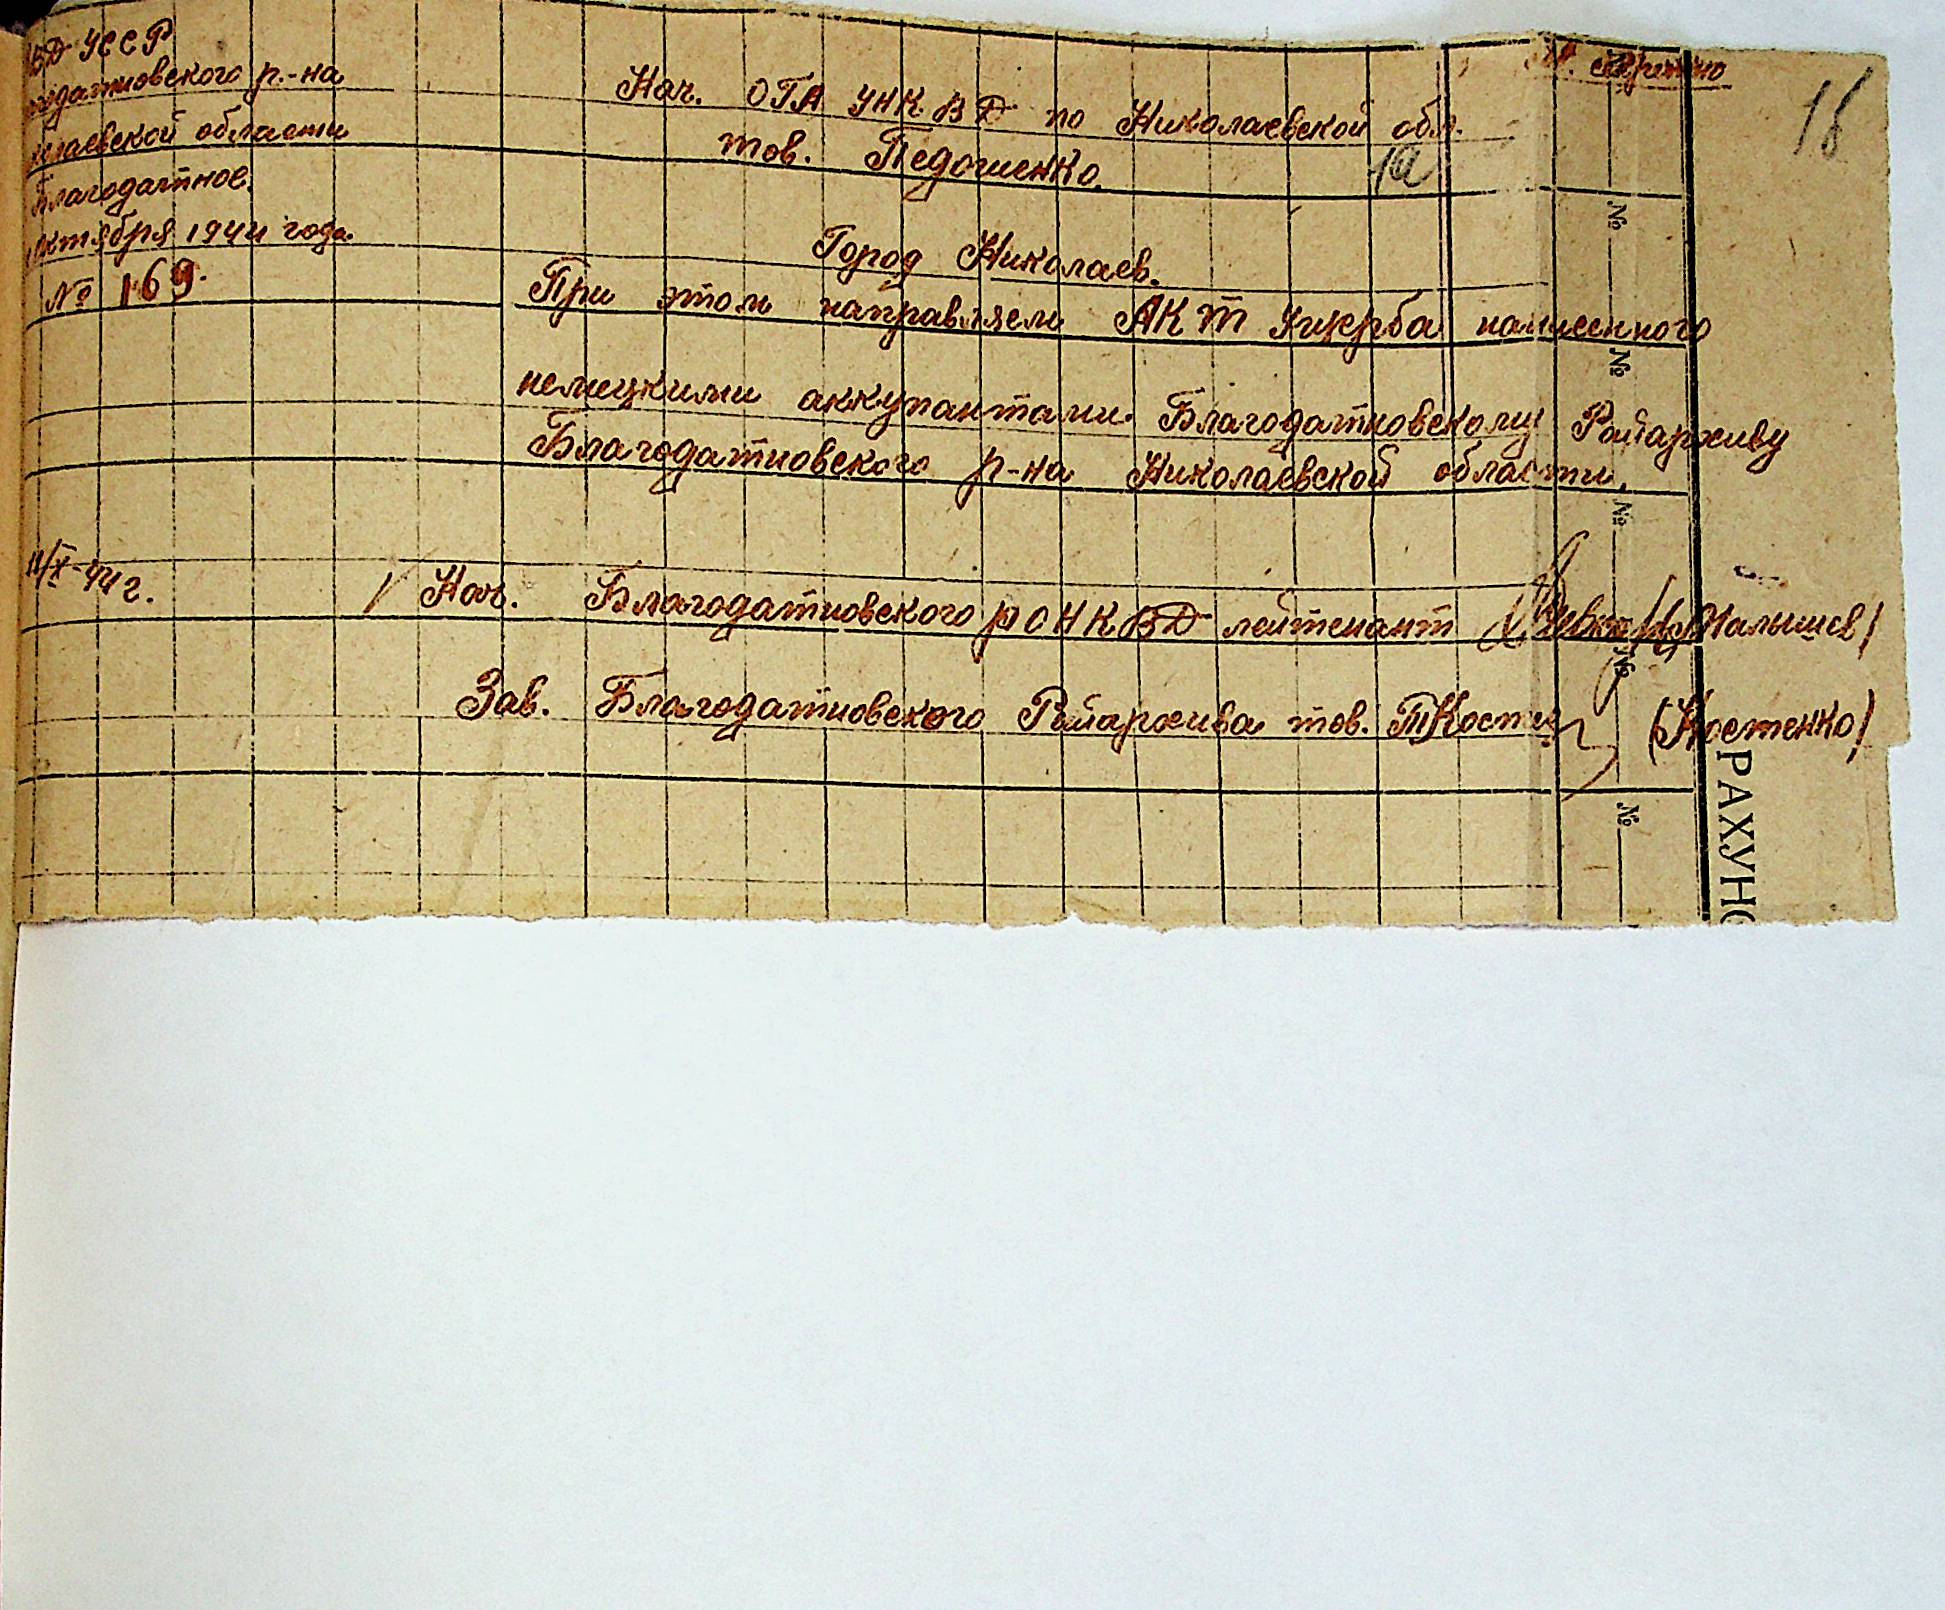 ВД УССР
годатновского р.-на
лаевской области
Благодатное.
октября 1944 года.
№ 169.
секретно
18
Нач. ОГА УНКВД по Николаевской обл.
тов. Педошенко.
1а
Город Николаев.
При этом направляем АКТ ущерба нанесенного
немецкими аккупантами Благодатновскому Райархиву
Благодатновского р-на Николаевской области.
11/X-44 г.
Нач. Благодатновского РОНКВД лейтенант (Малышев)
Зав. Благодатновского Райархива тов. ТКост (Костенко)
№
№
№
№
№
РАХУНО